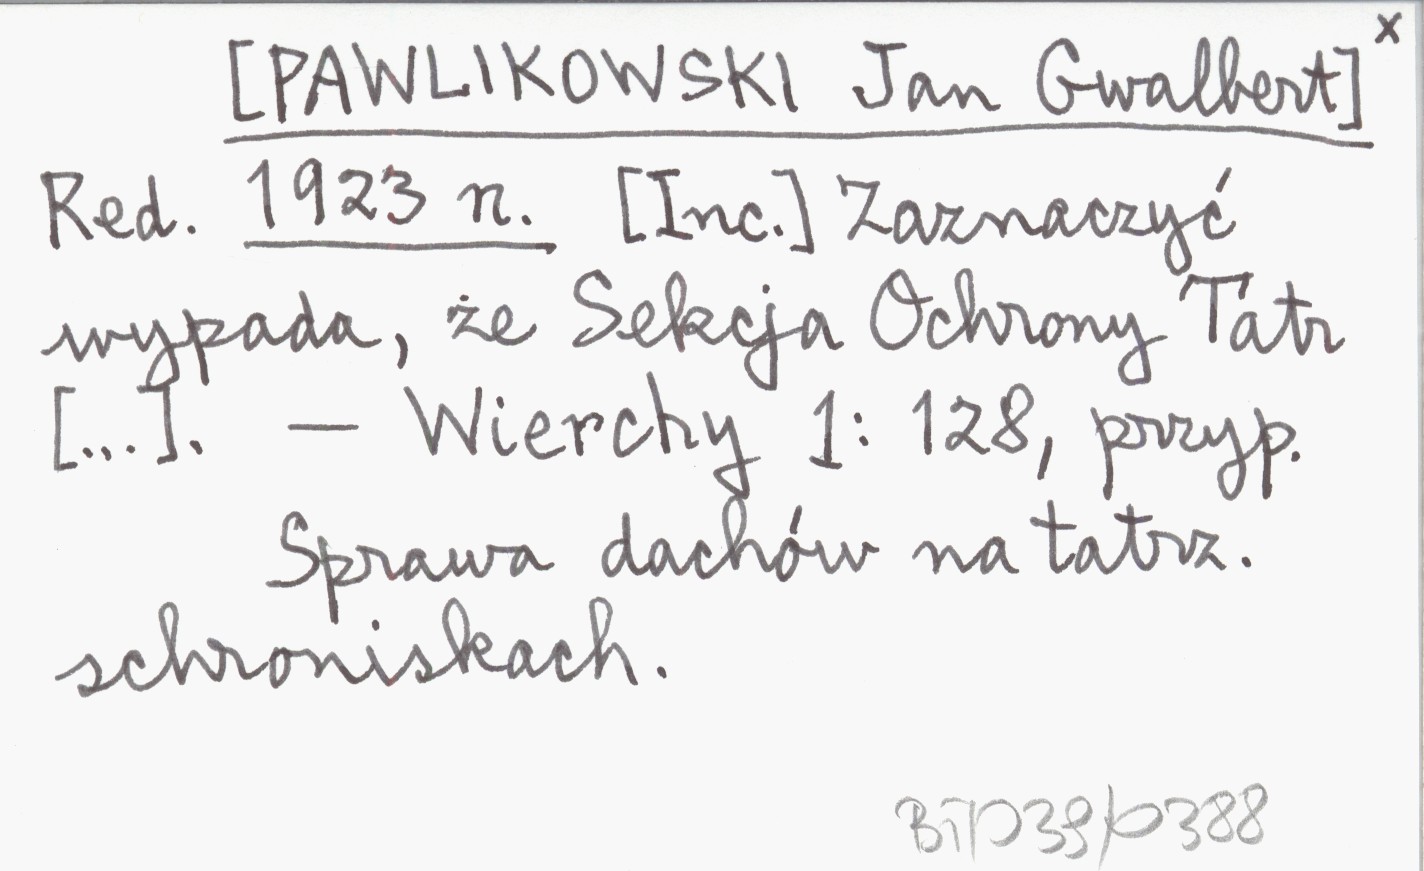 [PAWLIKOWSKI Jan Gwalbert] x
Red. 1923 n. [Inc.] Zaznaczyć
wypada, że Sekcja Ochrony Tatr
[...]. — Wierchy 1: 128, przyp.
Sprawa dachów na tatrz.
schroniskach.